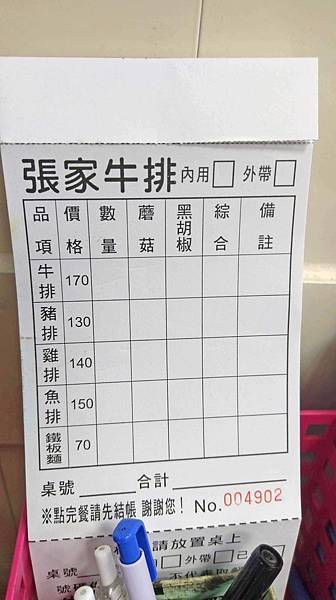 張家牛排 內用□ 外帶□
品項 價格 數量 蘑菇 黑胡椒 綜合 備註
牛排 170
豬排 130
雞排 140
魚排 150
鐵板麵 70
桌號 合計
※點完餐請先結帳 謝謝您! No.004902
請放置桌上
桌號 外帶□